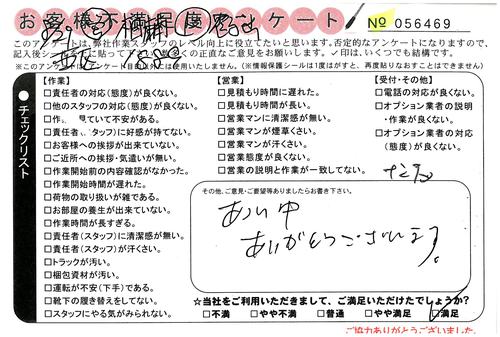 お客様満足度アンケート
№ 056469
このアンケートは、弊社作業スタッフのレベル向上に役立てたいと思います。否定的なアンケートになりますので、
記入後シールを貼って
の正直なご意見をお願いします。✓印は、いくつでも結構です。
※このアンケートは
使用いたしません。(※情報保護シールは1度はがすと、再度貼りなおすことはできません)
チェックリスト
【作業】
□責任者の対応(態度)が良くない。
□他のスタッフの対応(態度)が良くない。
□作 見ていて不安がある。
□責任者、タッフ)に好感が持てない。
□お客様への挨拶が出来ていない。
□ご近所への挨拶・気遣いが無い。
□作業開始前の内容確認がなかった。
□作業開始時間が遅れた。
□荷物の取り扱いが雑である。
□お部屋の養生が出来ていない。
□作業時間が長すぎる。
□責任者(スタッフ)に清潔感が無い。
□責任者(スタッフ)が汗くさい。
□トラックが汚い。
□梱包資材が汚い。
□運転が不安(下手)である。
□靴下の履き替えをしてない。
□スタッフにやる気がみられない。
【営業】
□見積もり時間に遅れた。
□見積もり時間が長い。
□営業マンに清潔感が無い。
□営業マンが煙草くさい。
□営業マンが汗くさい。
□営業態度が良くない。
□営業の説明と作業が一致してない。
【受付・その他】
□電話の対応が良くない。
□オプション業者の説明
・作業が良くない。
□オプション業者の対応
(態度)が良くない。
その他、ご意見・ご要望等ありましたらお書き下さい。
ありがとうございます。
☆当社をご利用いただきまして、ご満足いただけたでしょうか?
□不満 □やや不満 □普通 □やや満足 ☑満足
ご協力ありがとうございました。